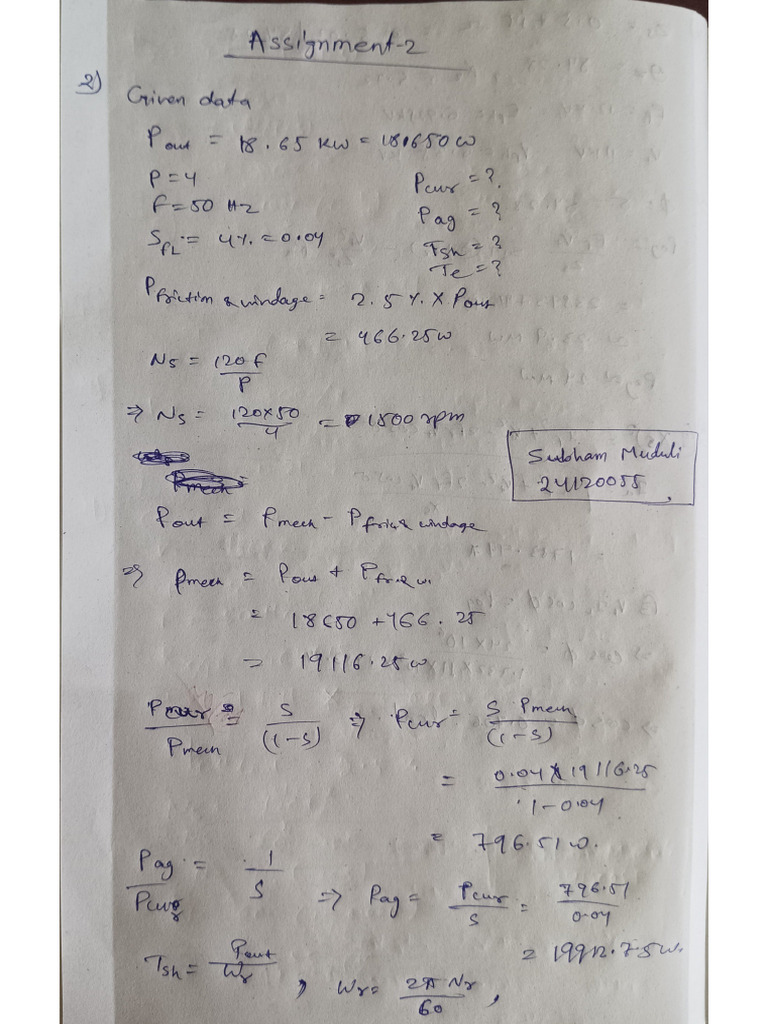 Assignment-2
2) Given data
Pout = 18.65 KW = 18650 W
P = 4
Pcur = ?
F = 50 Hz
Pag = ?
SFL = 4% = 0.04
Tsh = ?
Te = ?
Pfriction & windage = 2.5% × Pout
= 466.25 W
Ns = 120 F / P
⇒ Ns = 120×50 / 4 = 1500 rpm
Pmech =
Subham Muduli
24120055
Pout = Pmech - Pfric & windage
⇒ Pmech = Pout + Pfr & w.
= 18650 + 466.25
= 19116.25 W
Pcur / Pmech = S / (1-S) ⇒ Pcur = S Pmech / (1-S)
= 0.04 × 19116.25 / 1-0.04
= 796.51 W.
Pag / Pcur = 1 / S ⇒ Pag = Pcur / S = 796.51 / 0.04
= 19912.75 W.
Tsh = Pout / Wr , Wr = 2π Nr / 60 ,